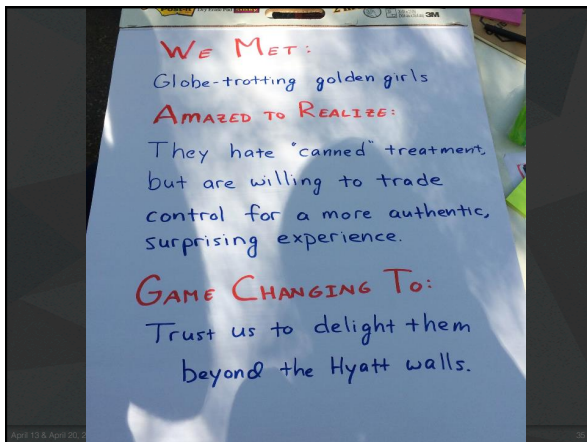 WE MET:
Globe-trotting golden girls
AMAZED TO REALIZE:
They hate "canned" treatment,
but are willing to trade
control for a more authentic,
surprising experience.
GAME CHANGING TO:
Trust us to delight them
beyond the Hyatt walls.
3M
April 13 & April 20, 2